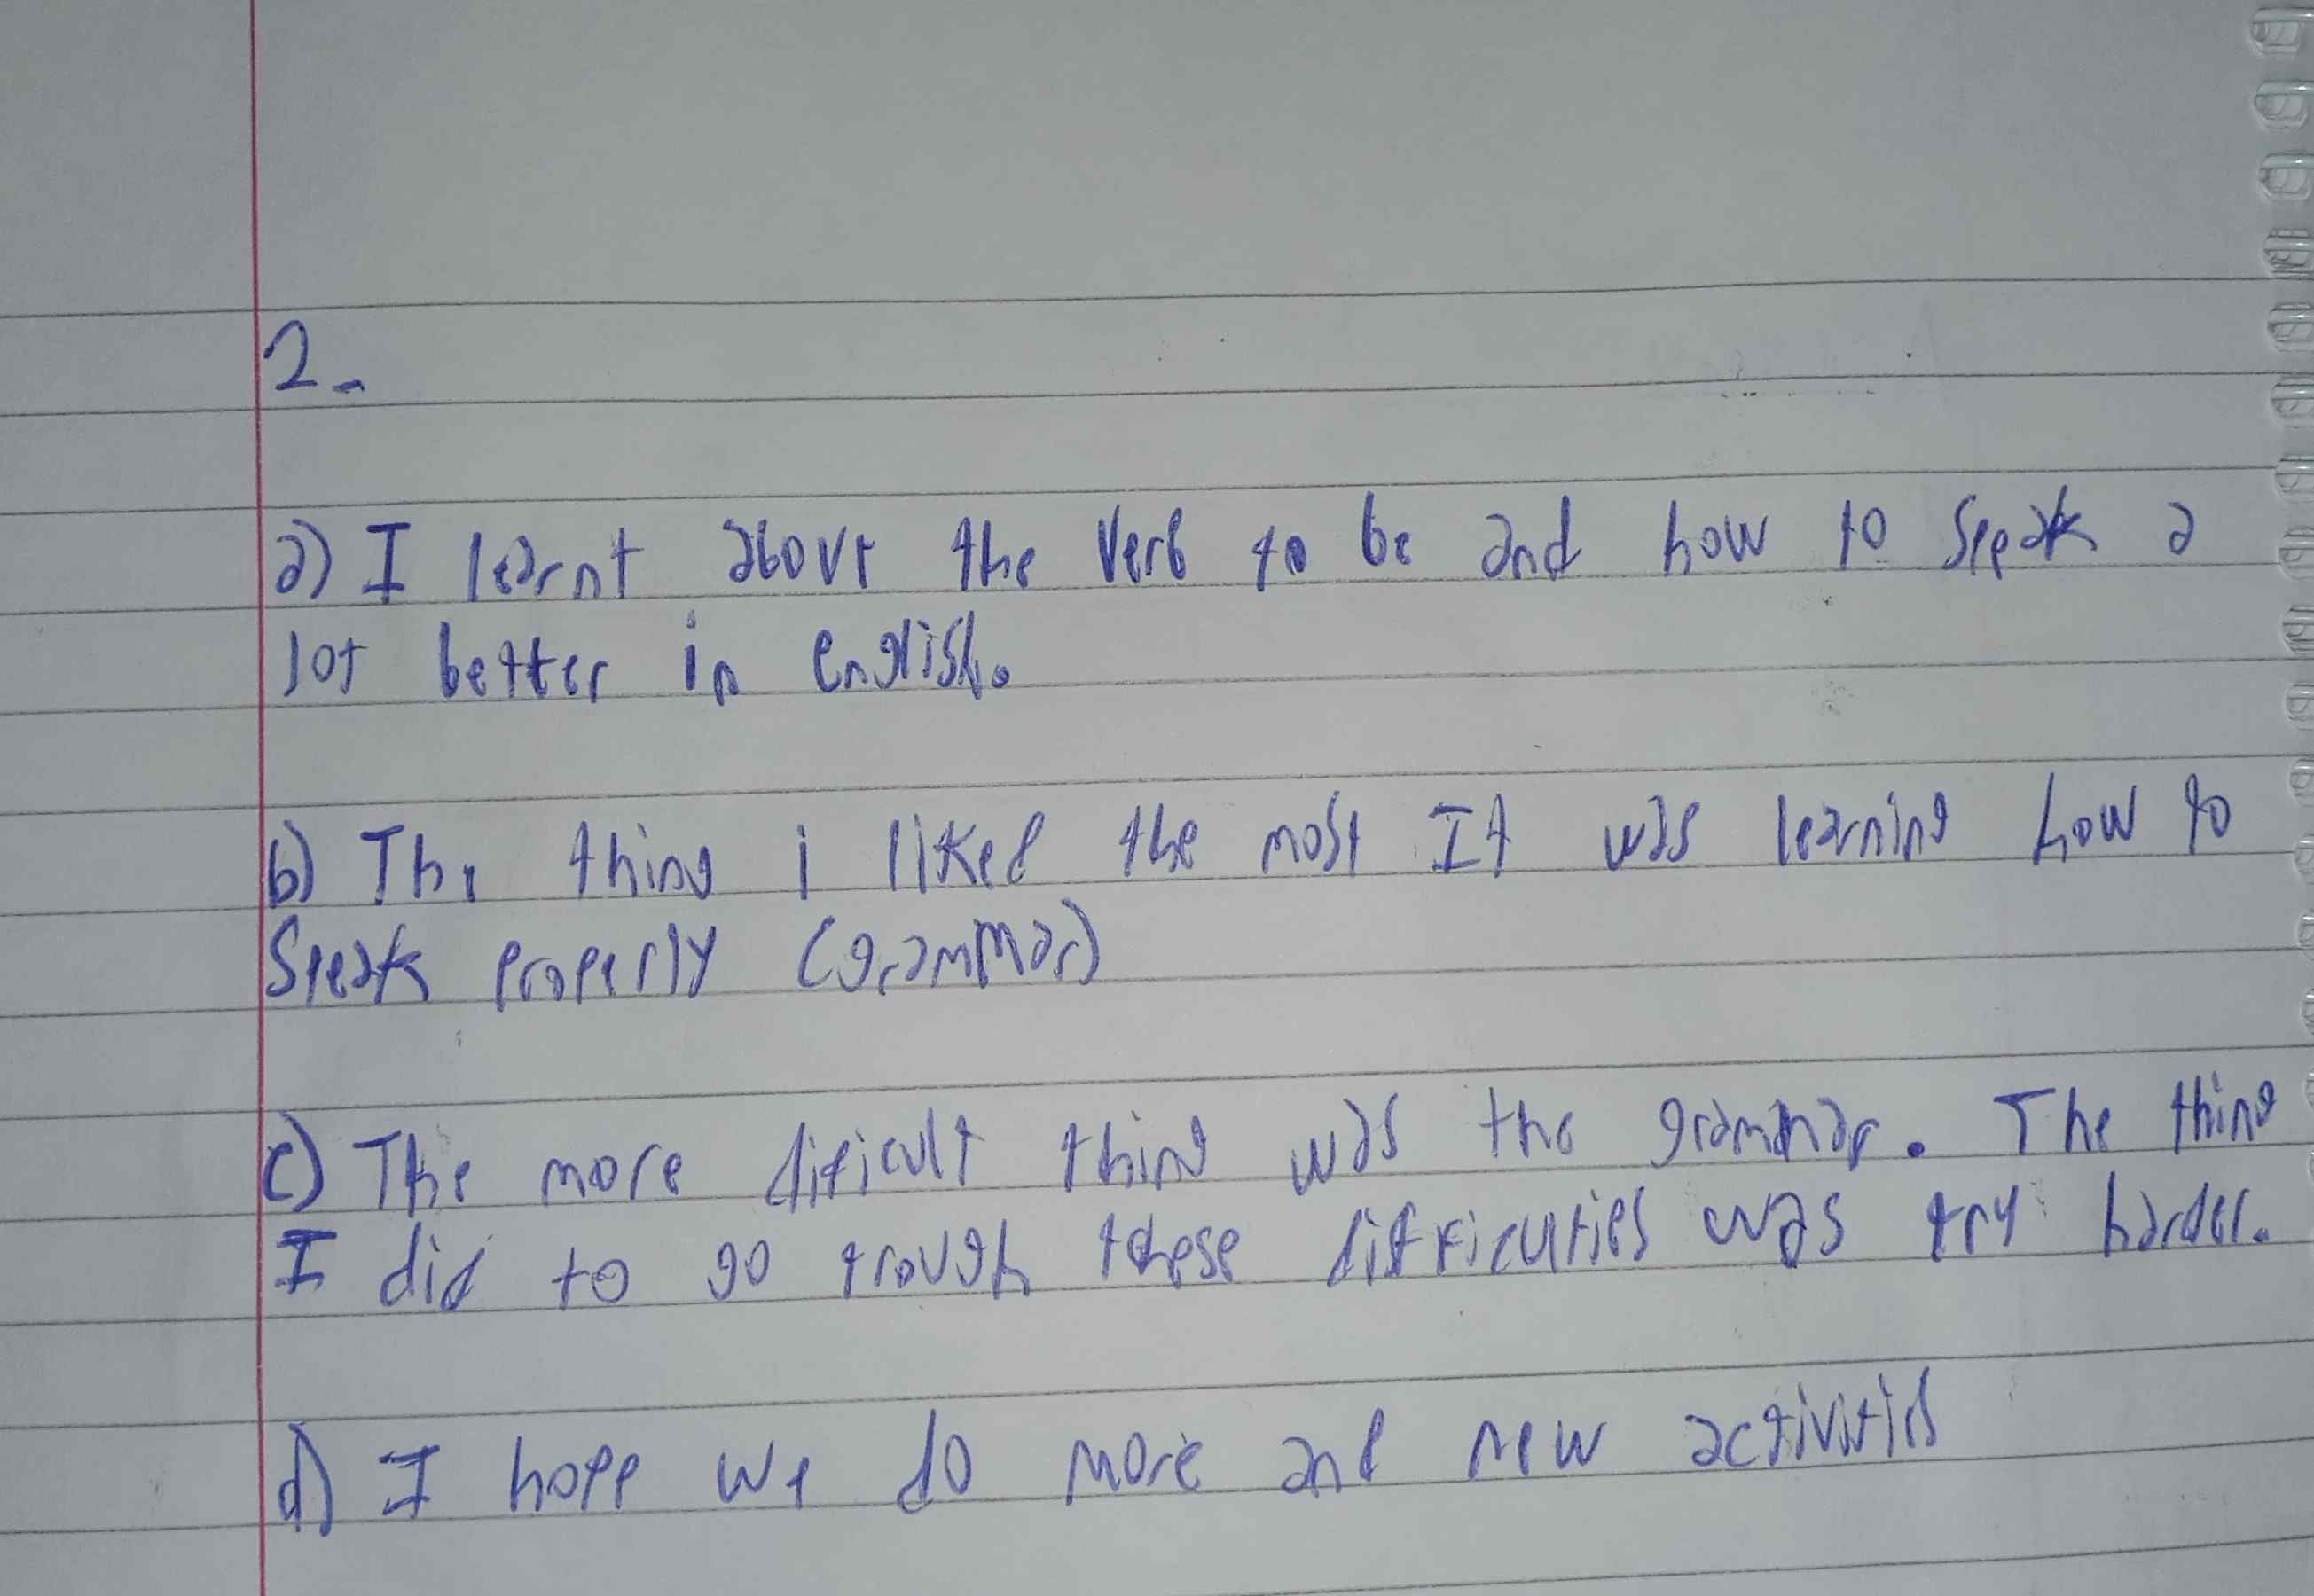 2-
a) I learnt about the verb to be and how to speak a
lot better in english.
b) The thing i liked the most It was learning how to
Speak properly (grammar)
c) The more dificult thing was the grammar. The thing
I did to go trough these difficulties was try harder.
d) I hope we do more and new activities